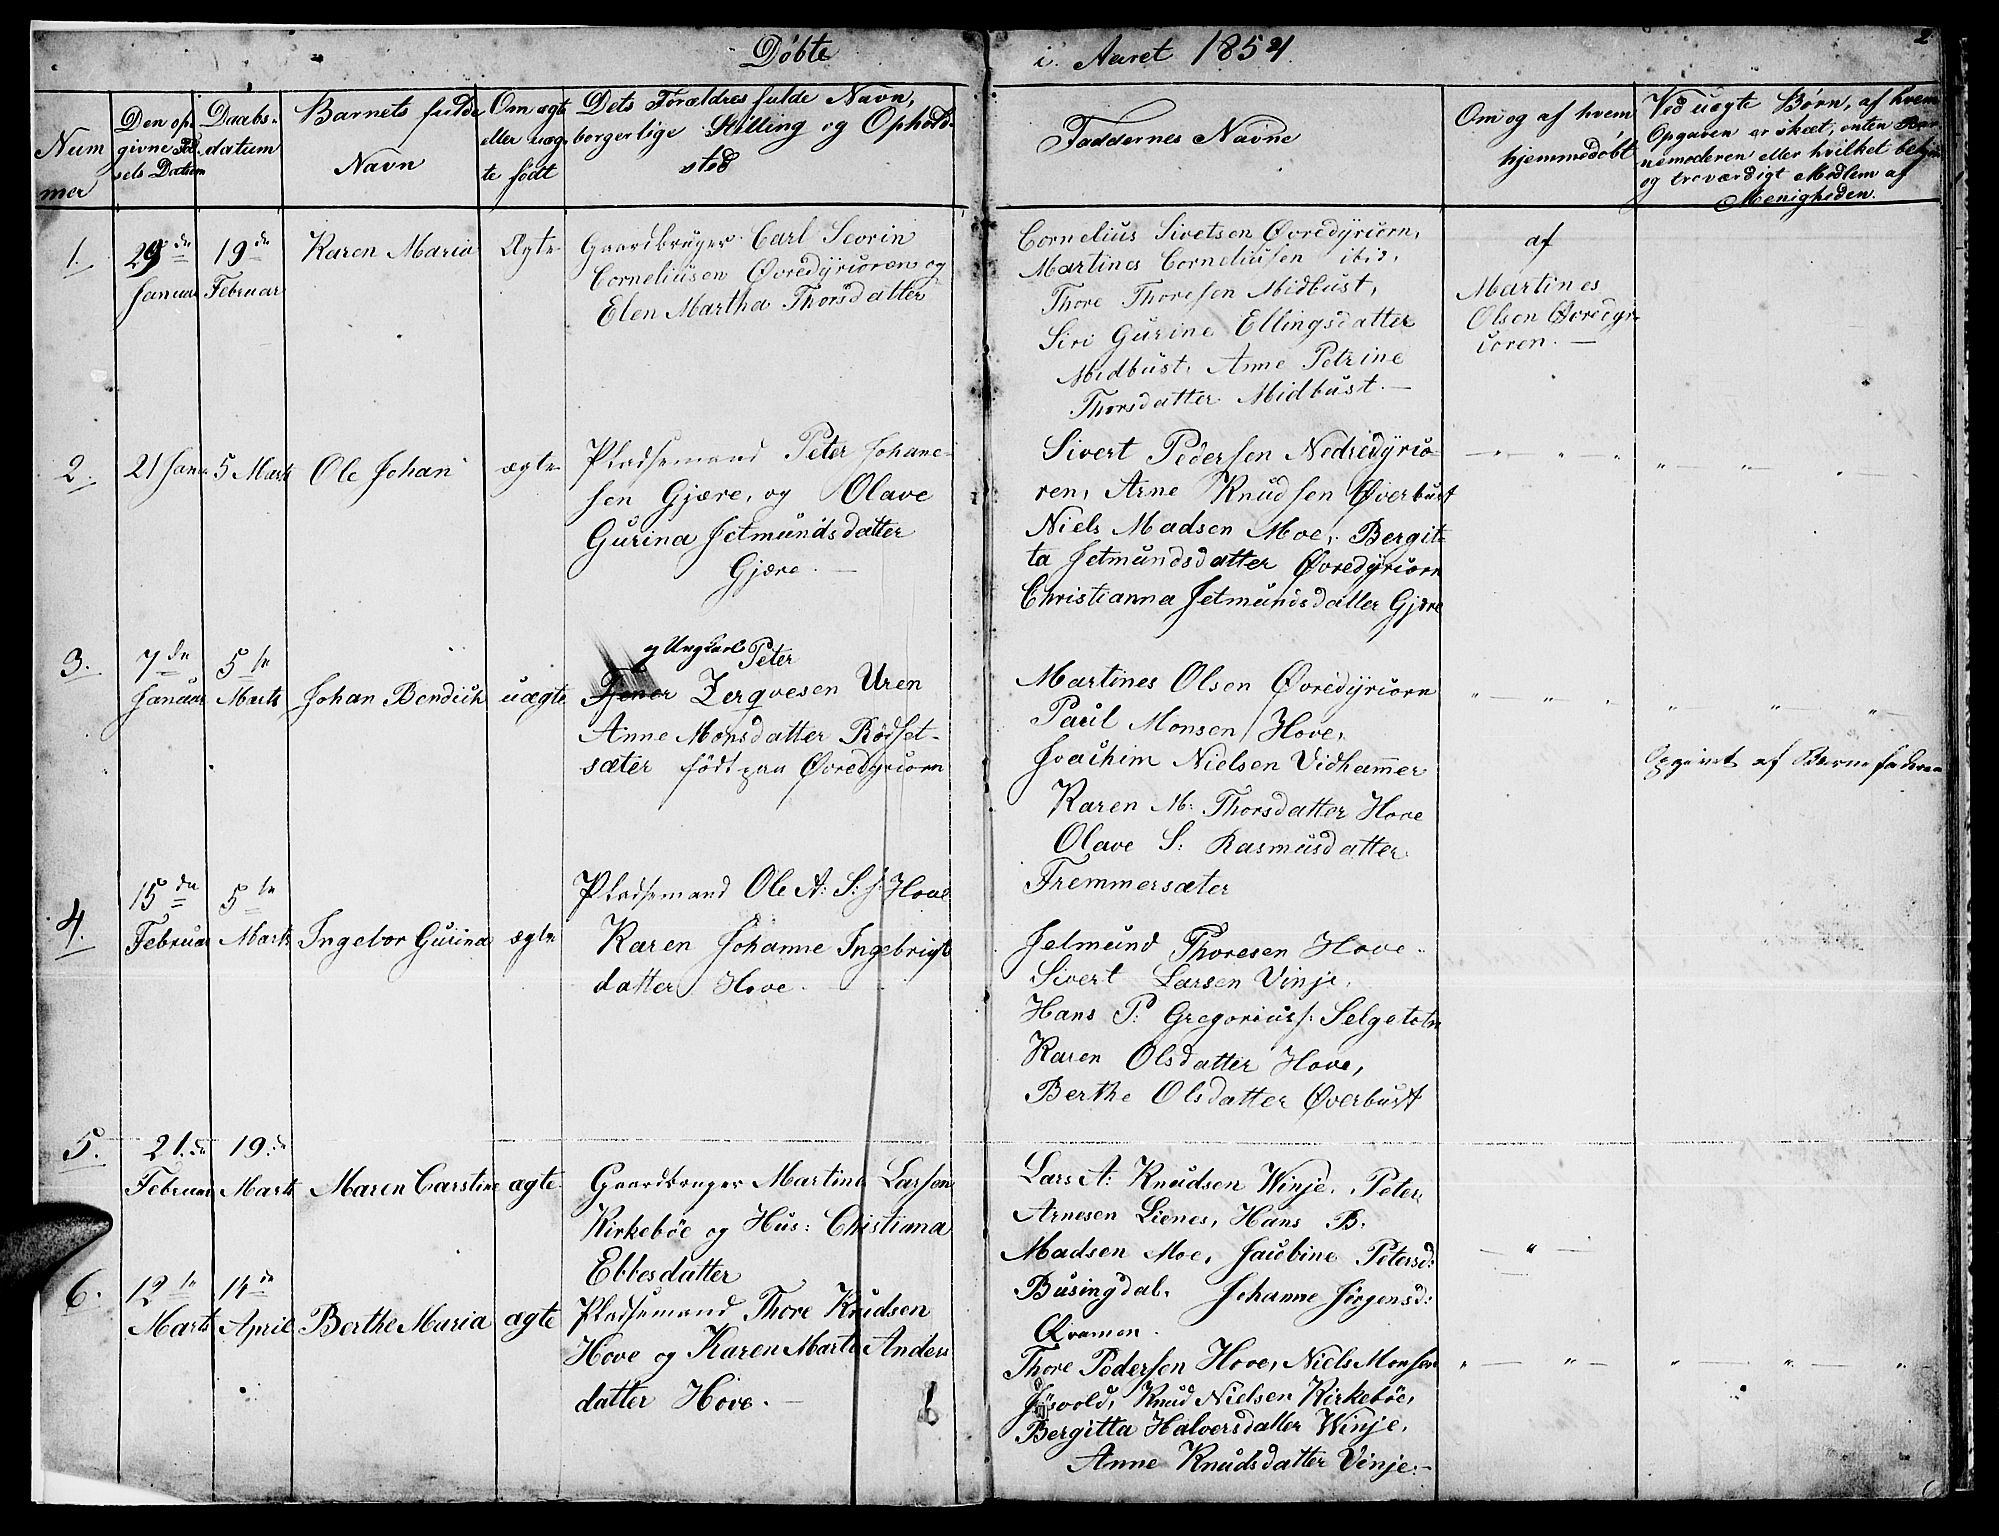 Døbte i Aaret 1854.
2
Num
mer
Den op-
givne Fød-
sels Datum
Daabs-
datum
Barnets fulde
Navn
Om ægte
eller uæg-
te født
Dets Forældres fulde Navn,
borgerlige Stilling og Opholds-
sted
Faddernes Navne
Om og af hvem
hjemmedøbt
Ved uægte Børn, af hvem
Opgaven er skeet, enten Bar-
nemoderen eller hvilket
og troværdigt Medlem af
Menigheden.
1.
29de
Januar
19de
Februar
Karen Maria
Ægte
Gaardbruger Carl Severin
Corneliusen Øvredyrioren og
Elen Martha Thorsdatter
Cornelius Sivetsen Øvredyriorn,
Martines Corneliusen ibid,
Thore Thoresen Midbust,
Siri Gurine Ellingsdatter
Midbust, Anne Petrine
Thorsdatter Midbust.
af
Martines
Olsen Øvredyr-
ioren.
2.
21 Janr
5 Marts
Ole Johan
ægte
Pladsemand Peter Johane-
sen Gjære, og Olave
Gurina Jetmundsdatter
Gjære.
Sivert Pedersen Nedredyrio-
ren, Arne Knudsen Øverbust
Niels Madsen Moe, Bergit-
ta Jetmundsdatter Øvredyriorn
Christianna Jetmundsdatter Gjære
3.
7de
Januar
5te
Marts
Johan Bendich
uægte
og Ungkarl Peter
Zerqvesen Uren
Anne Monsdatter Rødset-
sæter født paa Øvredyriorn
Martines Olsen Øvredyriorn
Paul Monsen Hove,
Joachim Nielsen Vidhammer
Karen M: Thorsdatter Hove
Olave S: Rasmusdatter
Fremmersæter
Opgivet af Barnefaderen
4.
15de
Februar
5te
Marts
Ingebor Gurina
ægte
Pladsemand Ole A: S: Hove
Karen Johanne Ingebrigts
datter Hove.
Jetmund Thoresen Hove.
Sivert Larsen Vinje,
Hans P: Gregorius: Selgetotn
Karen Olsdatter Hove,
Berthe Olsdatter Øverbust
5.
21.de
Februar
19.de
Marts
Maren Carstine
ægte
Gaardbruger Martine Larsen
Kirkebøe og Hus: Christiana
Ebbesdatter
Lars A: Knudsen Winje, Peter
Arnesen Lienes, Hans B.
Madsen Moe, Jacobine Petersd:
Busingdal, Johanne Jørgensd:
Qvamen.
6.
12te
Marts
14de
April
Berthe Maria
ægte
Pladsemand Thore Knudsen
Hove og Karen Marte Anders
datter Hove.
Thore Pedersen Hove, Niels Monsen
Knud Nielsen Kirkebøe,
Bergitta Halversdatter Winje,
Anne Knudsdatter Vinje.